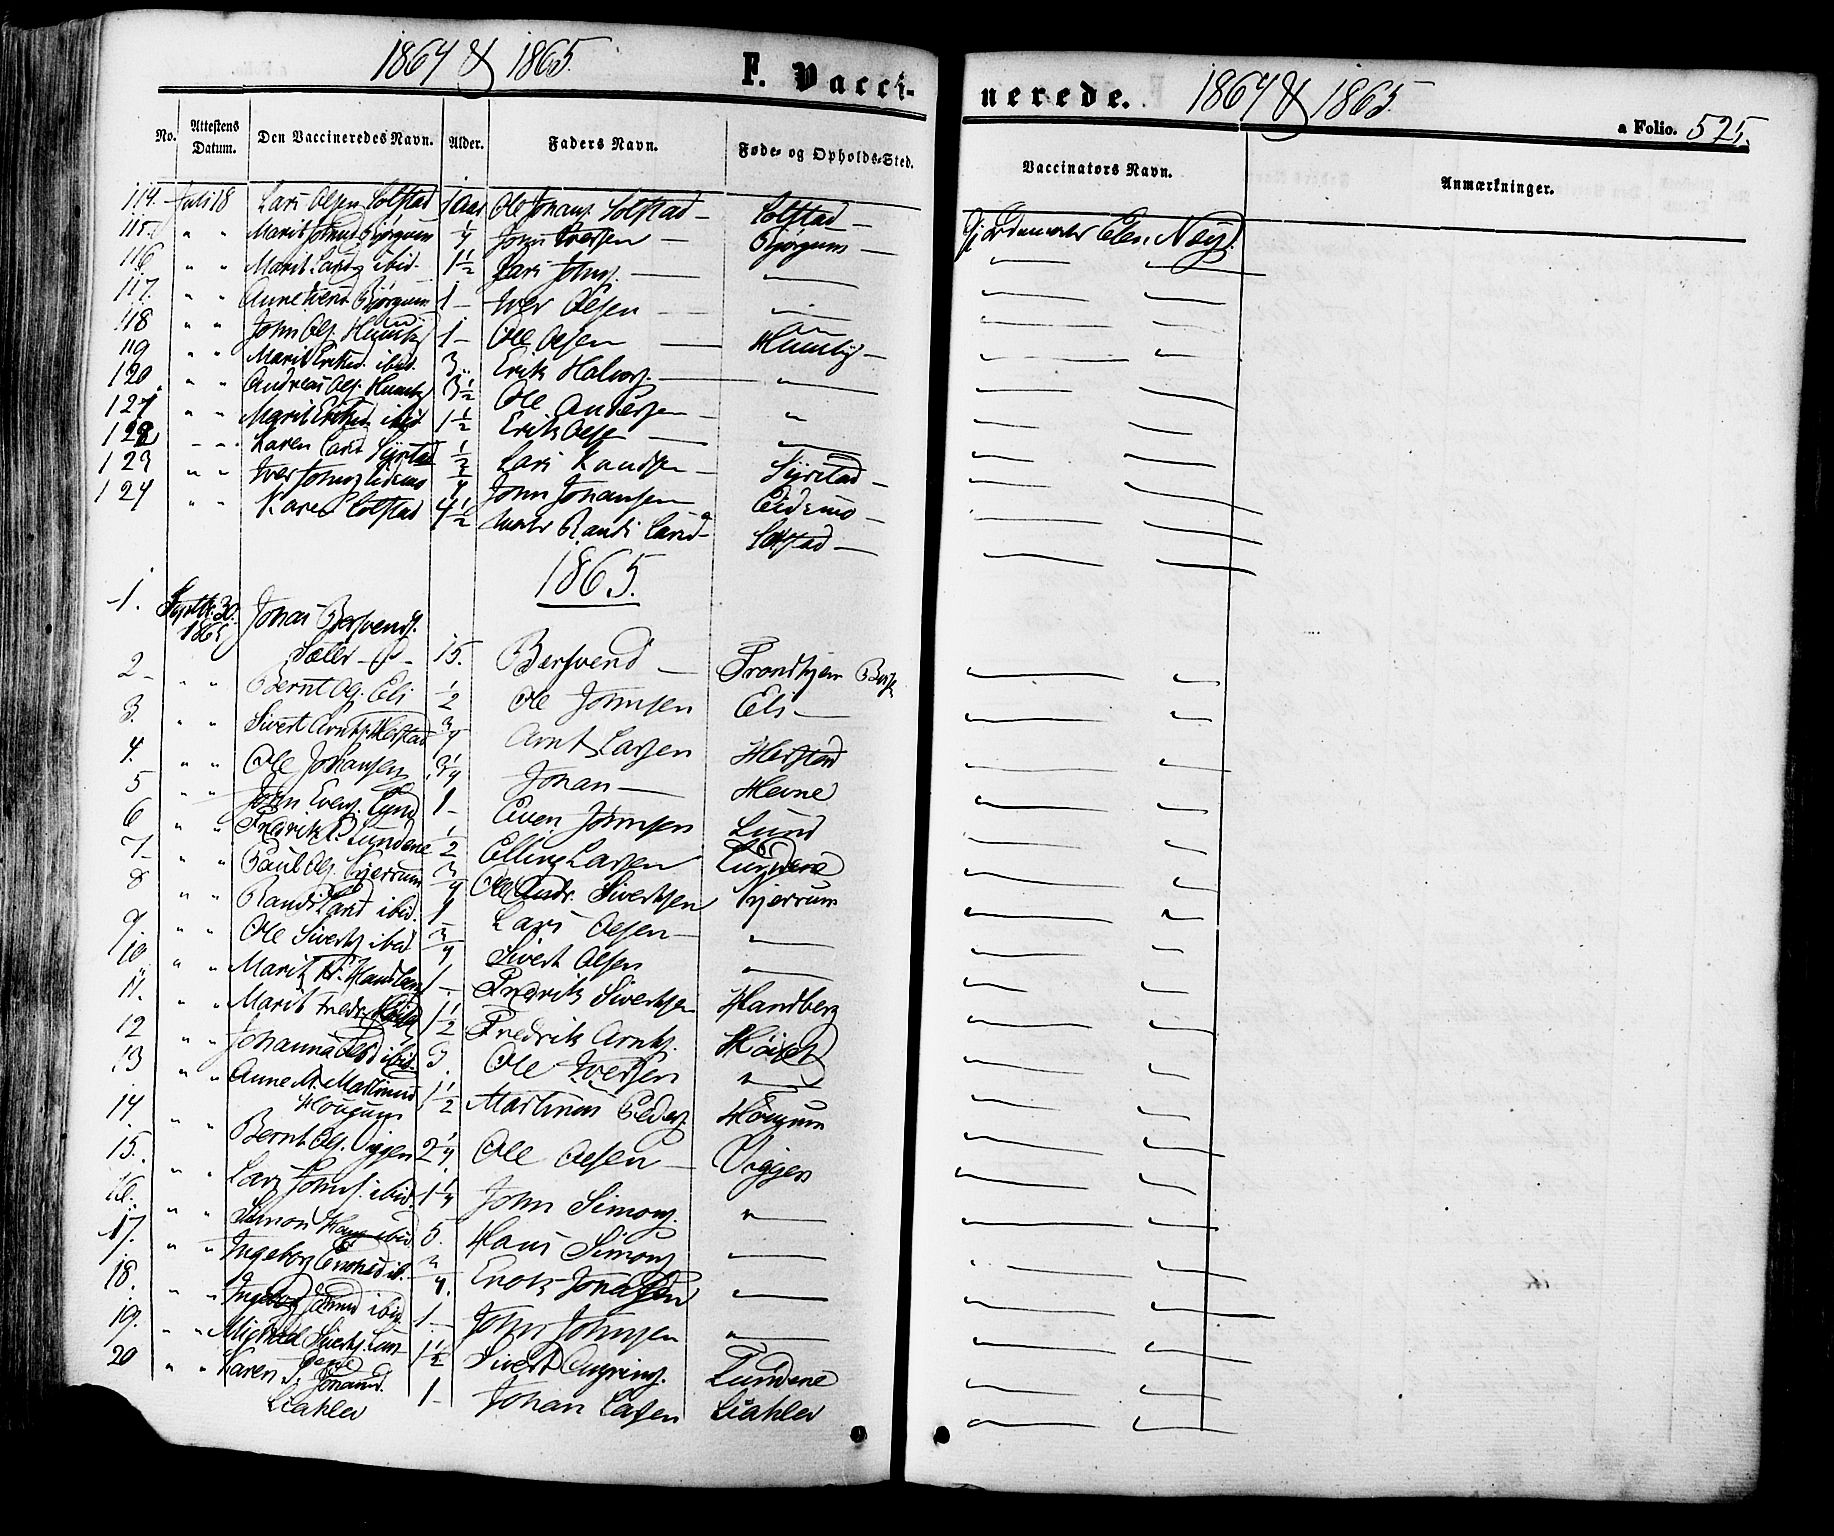 1864 & 1865.
F. Vacci-
nerede.
1864 & 1865.
a Folio. 525.
No. Attestens Datum. Den Vaccineredes Navn. Alder. Faders Navn. Føde- og Opholds-Sted. Vaccinators Navn. Anmærkninger.
114. Juli 18 Lars Olsen Solstad 1 Aar Ole Johans. Solstad - Solstad - Jordemoder
115. " " Marit 1/4 John Iversen - Bjørgum -
116. " " Marit Larsd. ibid. 1 1/2 Lars Johns. - "
117. " " Anne Iversd. Bjørgum 1 - Iver Olsen - "
118 " " John Ols. 1 - Ole Olsen -
119 " " Marit Eriksd. ibid. 3 Erik Halvors. - "
120 " " Andreas Ols. 3 1/2 Ole Andersen - "
121 " " Marit Eriksd. ibid 1 1/2 Erik Olsen -
122 " " Karen Larsd. Syrstad 1/2 Lars Knudsen - Syrstad -
123 " " Iver Johns. Eidsmo 3/4 John Johansen Eidsmo -
124 " " Karen Solstad 4 1/2 Moder Randi Larsd - Solstad -
1865.
1. Septbr. 30. 1865 Jonas Bersvends.
Sæter 15. Bersvend - Trondhjem
2 - " " Bernt Ols. Eli 1/2 Ole Johnsen Eli -
3. " " Sivert Arnts. Herstad 3/4 Arnt Larsen Herstad
4. " " Ole Johansen 3 1/4 Johan - Hevne
5 " " John Evens. Lund 1 - Even Johnsen Lund
6 " " Fredrik E. Lundene 1/2 Elling Larsen Lundene
7 - " " Paul Ols. Kjerrum 3/4 Ole Andr. Sivertsen Kjerrum
8 " " Randi Larsd ibid. 1 Lars Olsen - "
9. " " Ole Siverts. ibid 3/4 Sivert Olsen "
10 " " Marit Fr. Handberg 1 - Fredrik Sivertsen Handberg
11. " " Marit Fredr. 1 1/2 Fredrik Arnts.
12 " " Johanna Olsd ibid. 3. Ole Iversen "
13 " " Anne M. Martinusd
Hougum 1 1/2 Martinus Peders. Hougum
14. " " Bernt Ols. Viggen 2 1/4 Ole Olsen - Viggen
15. " " Lars Johns. ibid. 1 1/4 John Simons. "
16. " " Simon Hans. ibid 5. Hans Simons "
17. " " Ingeborg Enoksd. ib. 3/4. Enok Jonassen "
18. " " Ingeborg Johnsd ibid 1 - John Johnsen "
19. " " Michael Siverts. Lun-
dene 1 1/2 Sivert Lundene
20 " " Karen J. Johansd.
Liahlen 1 - Johan Larsen Liahlen